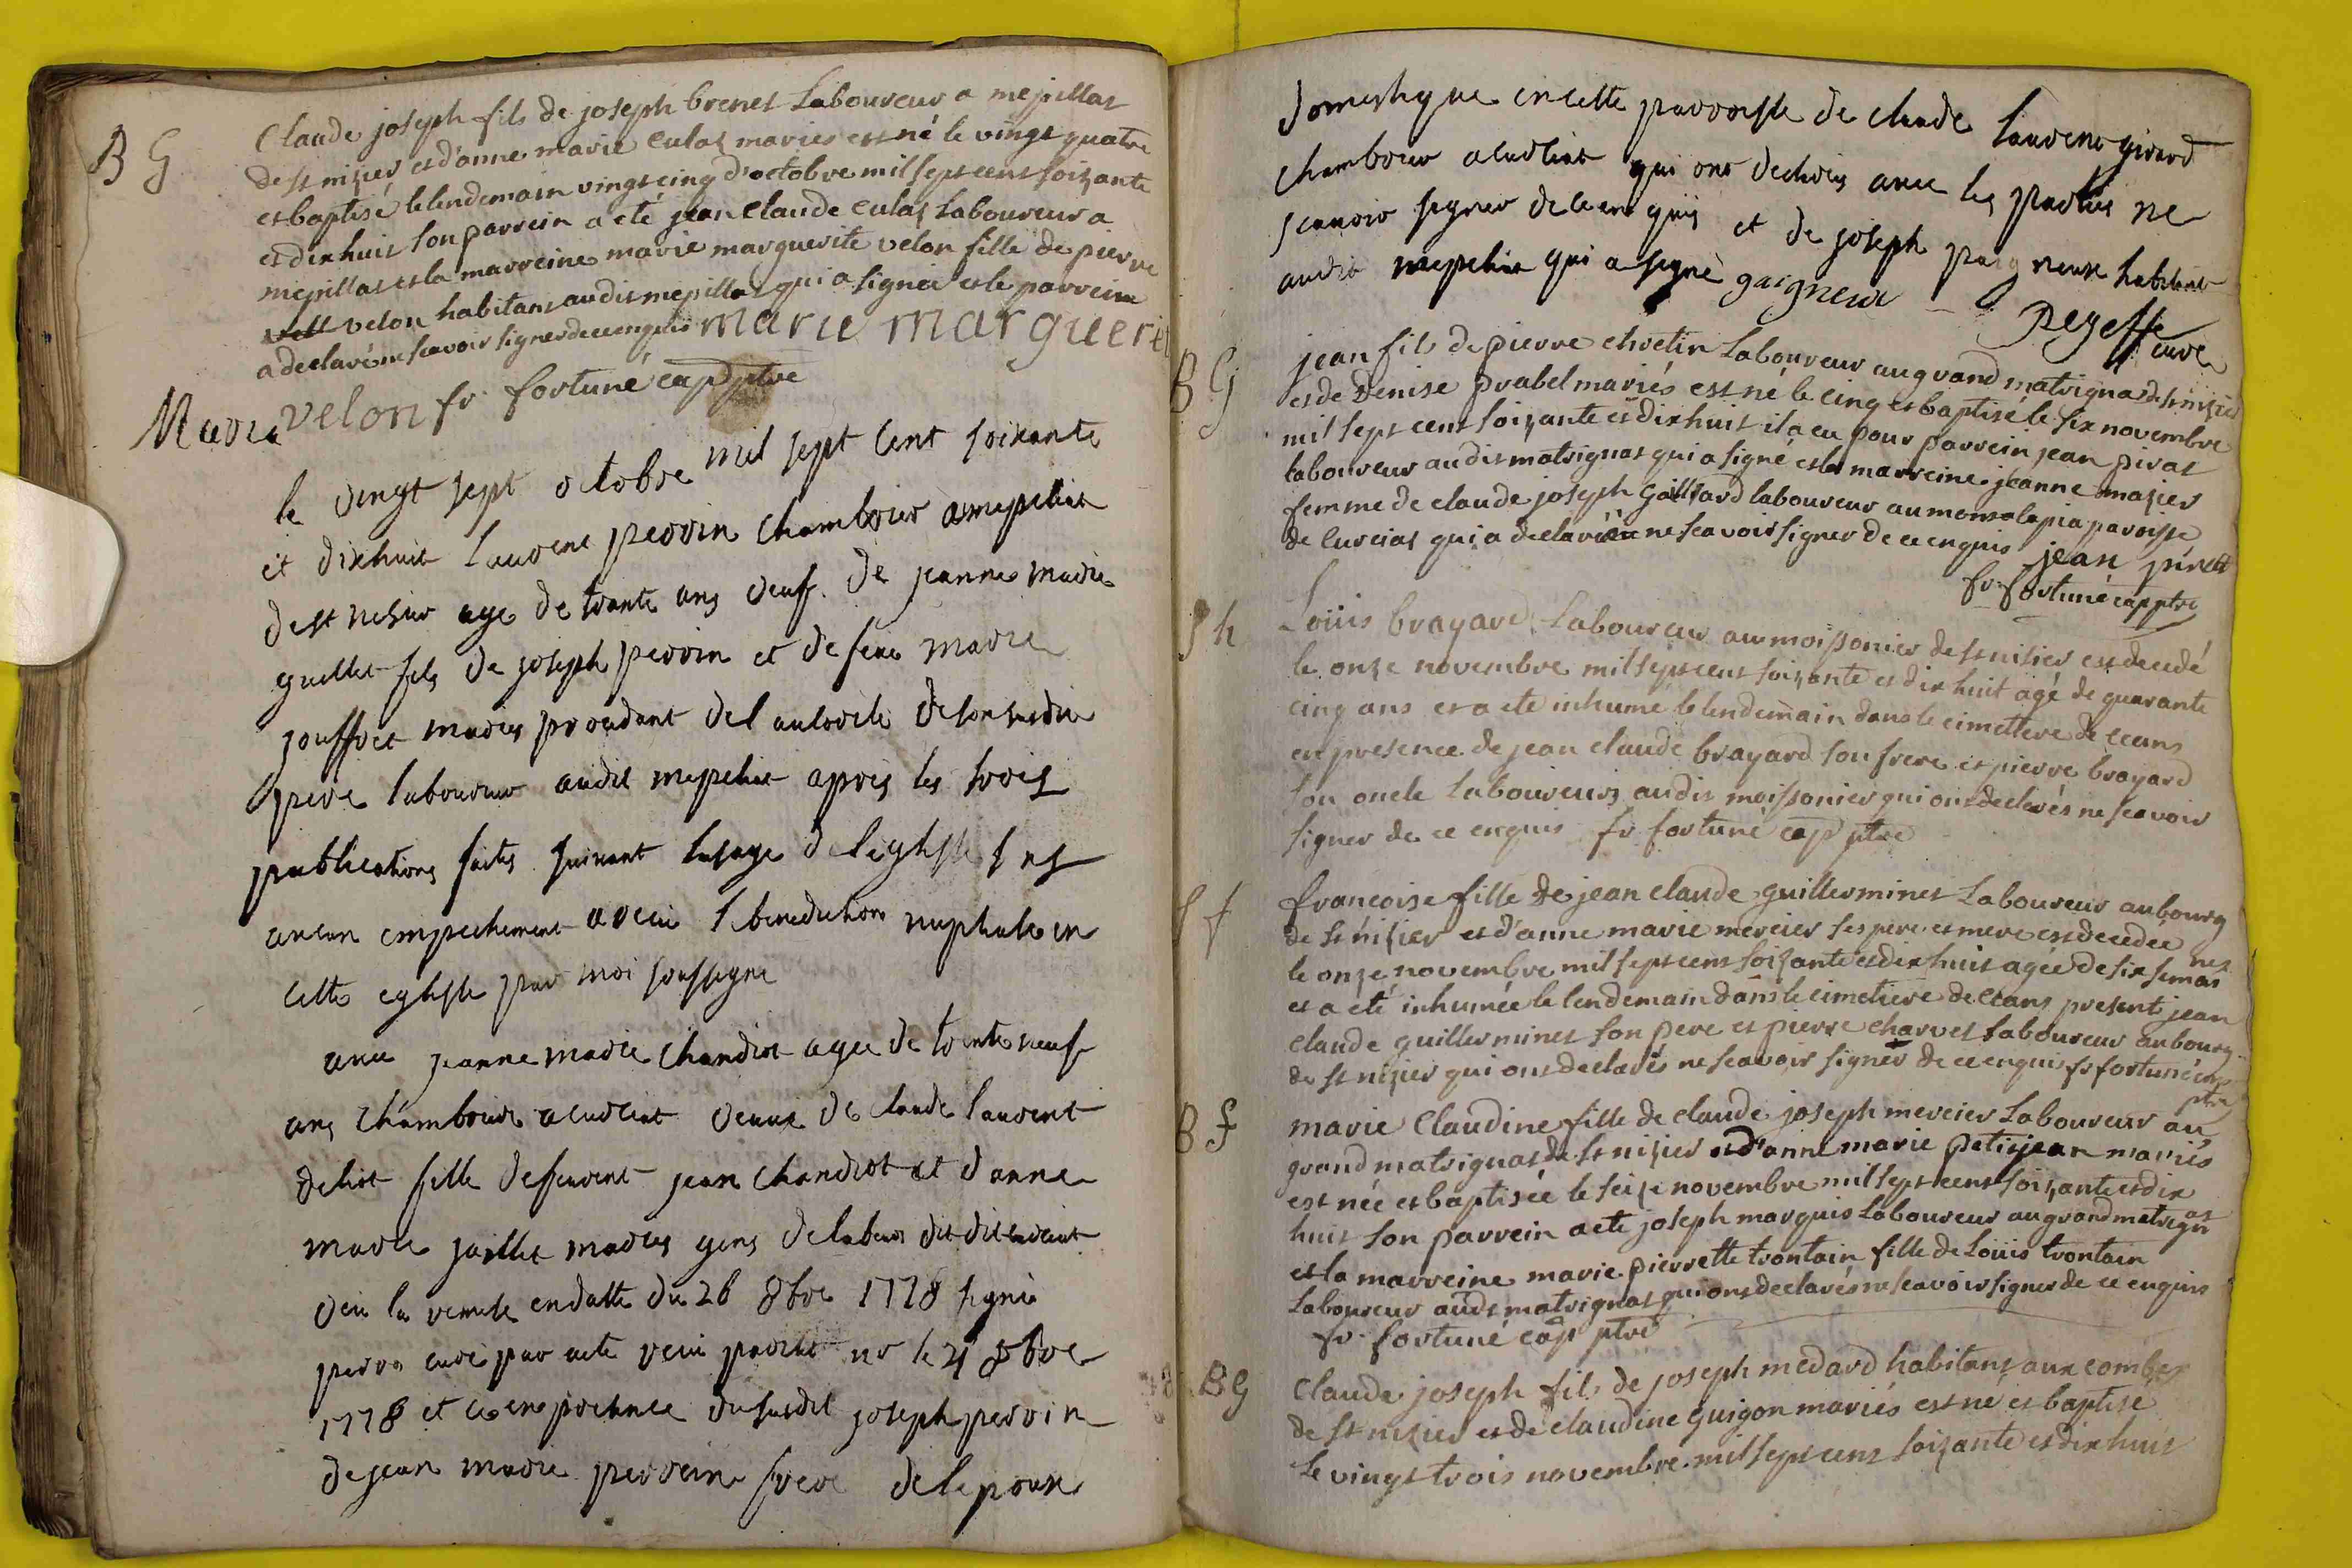 B G
Claude joseph fils de joseph brenet Laboureur a mepillat
de st nizier et d'anne marie Culas mariés est né le vingt quatre
et baptisé le lendemain vingt cinq d'octobre mil sept cent soizante
et dix huit son parrein a eté jean Claude Culas Laboureur a
mepillat et la marreine marie marguerite velon fille de pierre
velon habitant audit mepillat qui a signée et le parrein
a declaré ne scavoir signer de ce enquis marie marguerit
velon fr. fortuné cap ptre
le vingt sept octobre mil sept Cent soixante
et dixhuit Laurent perrin Chambrier a mepeliat
de st nesier age de trante ans veuf de jeanne marie
guillet fils de joseph perrin et de feue marie
jouffret maries proudant de l autorite de son susdit
pere laboureur audit mepeliat apres les trois
publications faites suivant lusage de leglise sns
aucun empechement a recu l benediction nuptiale en
cette eglisse par moi soussigne
avec jeanne marie Chandiot agee de trente neuf
ans Chambriere a curciat veuve de Claude laurent
deliot fille defeuvent jean Chandiot et d anne
marie juillet maries gens de labeur dit
veu la remise en datte du 26 8bre 1778 signé
perra curé par acte recu nr le 21 8bre
1778 et ce en presence du susdit joseph perrin
de jean marie perrin frere de l epoux
domestique en cette parroisse de claude laurent girard
chambrier a curciat qui ont declarés avec les parties ne
scavoir signer de ce enquis et de joseph gaigneux habitant
audit mepeliat qui a signé gaigneux
curé
B G
jean fils de pierre chretin Laboureur au grand matrignat de st nizier
et de Denise prabel mariés est né le cinq et baptisé le six novembre
mil sept cent soizante et dix huit il a eu pour parrein jean pirat
laboureur audit matrignat qui a signé et la marreine jeanne mazier
femme de claude joseph gaillard laboureur au mons la pia paroisse
de curciat qui a declaré ne scavoir signer de ce enquis jean pirat
fr. fortuné cap ptre
S h
Loüis brayard Laboureur au moissonier de st nizier est decedé
le onze novembre mil sept cent soizante et dix huit agé de quarante
cinq ans et a eté inhumé le lendemain dans le cimetiere de ceans
en presence de jean claude brayard son frere et pierre brayard
son oncle laboureurs audit moissonier qui ont declarés ne scavoir
signer de ce enquis fr fortuné cap ptre
S f
francoise fille de jean claude guillerminet Laboureur au bourg
de st nizier et d'anne marie mercier ses pere et mere est decedée
le onze novembre mil sept cent soizante et dix huit agée de six semaines
et a eté inhumée le lendemain dans le cimetiere de ceans present jean
claude guillerminet son pere et pierre charvet laboureur au bourg
de st nizier qui ont declarés ne scavoir signer de ce enquis fr fortuné cap
ptre
B f
marie Claudine fille de claude joseph mercier Laboureur au
grand matrignat de st nizier et d'anne marie petitjean mariés
est née et baptisée le seize novembre mil sept cent soizante et dix
huit son parrein a eté joseph marquis Laboureur au grand matrignat
et la marreine marie pierrette trontain fille de Loüis trontain
Laboureur audt matrignat qui ont declarés ne scavoir signer de ce enquis
fr. fortuné cap ptre
B G
Claude joseph fils de joseph medard habitant aux combes
de st nizier et de claudine guigon mariés est né et baptisé
le vingt trois novembre mil sept cent soizante et dix huit